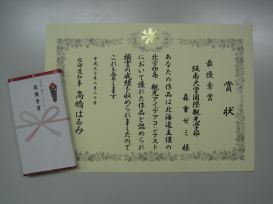 賞状
最優秀賞
阪南大学国際観光学部
森重ゼミ 様
あなたの作品は北海道主催の
北の新島 観光アイデアコンテスト
において優れた作品と認められ
頭書の成績を収められましたので
これを賞します
平成二十年八月二十日
北海道知事 高橋はるみ
最優秀賞